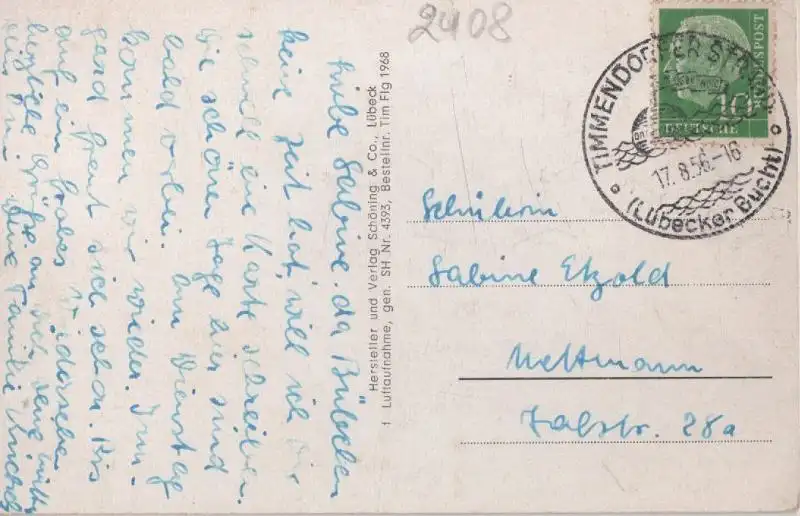 2408
Liebe Sabine. da Bübchen
keine Zeit hat, will ich Dir
schnell eine Karte schreiben.
Die schönen Tage hier sind
bald vorbei. Am Dienstag
kommen wir wieder. Irm-
gard freut sich schon. Bis
auf ein frohes Wiedersehen
herzliche Grüße an Dich, Deine Mutter
Deine Familie
Hersteller und Verlag Schöning & Co., Lübeck
† Luftaufnahme, gen. SH Nr. 4393, Bestellnr. Tim Flg 1968
10
DEUTSCHE
BUNDESPOST
TIMMENDORFER STRAND
17.8.56.-16
(Lübecker Bucht)
Schülerin
Sabine Etzold
Mettmann
Talstr. 28a